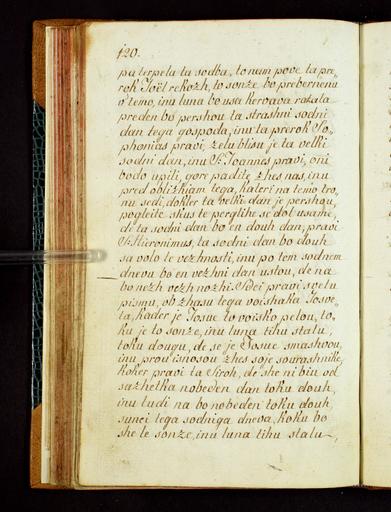 120.
pa terpela ta sodba, to nam pove ta pre,
rok Joël rekozh, to sonze bo prebernenu
v'temo, inu luna bo usa kervava ratala
preden bo pershou ta strashni sodni
dan tega gospoda, inu ta prerok So,
phonias pravi, zelu blisu je ta velki
sodni dan, inu S. Joannes pravi, oni
bodo upili, gore padite zhes nas, inu
pred oblizhjam tega, kateri na temo tro,
nu sedi, dokler ta velki dan je pershou,
pogleite skus te perglihe se dol usame,
de ta sodni dan bo en douh dan, pravi
S. Hieronimus, ta sodni dan bo douh
sa volo te vezhnosti, inu po tem sodnem
dnevu bo en vezhni dan ustou, de na
bo nezh vezh nozhi. Sdei pravi svetu
pismu, ob zhasu tega voishaka Josve,
ta, kader je Josue to voisko pelou, to,
ku je to sonze, inu luna tihu stalu,
toku dougu, de se je Josue smashvou,
inu prou isnosou zhes soje sourashnike,
koker pravi ta Siroh, de she ni biu od
sazhetka nobeden dan toku douh,
inu tudi na bo nobeden toku douh,
sunei tega sodniga dneva, koku bo
she le sonze, inu luna tihu stalu,